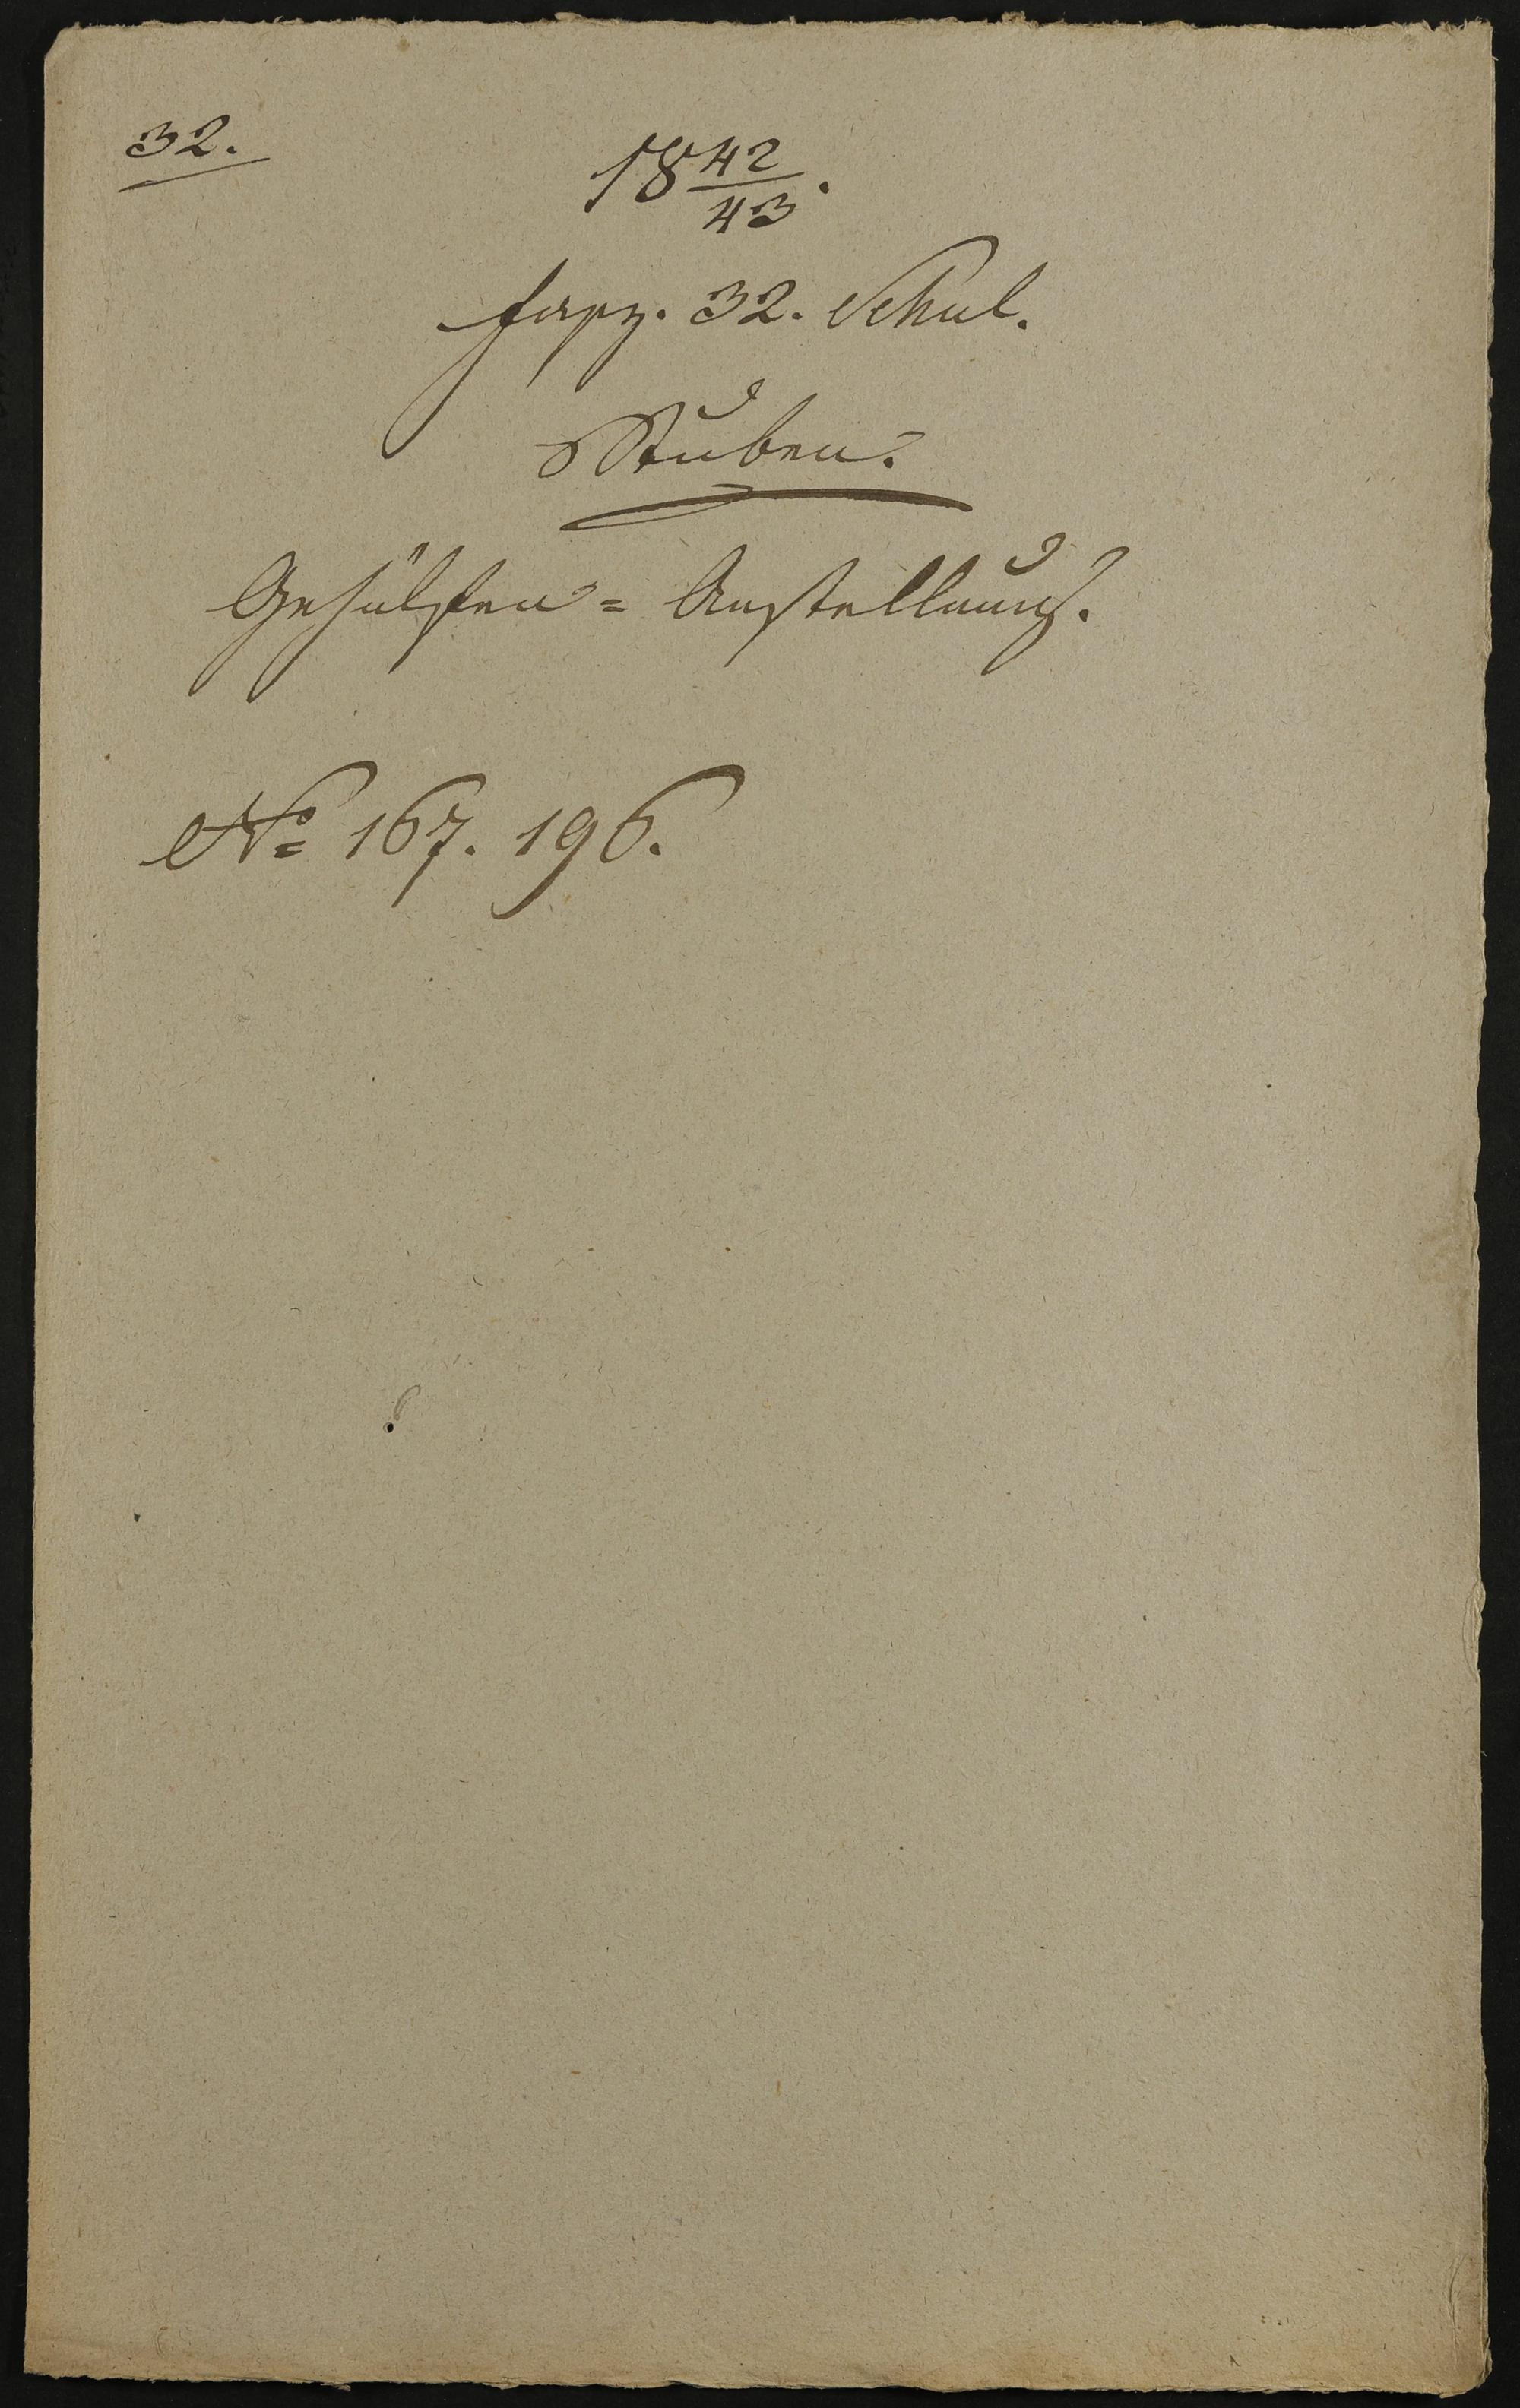 32.
18 42/43.
fasz. 32. Schul.
Stuben.
Gehülfen = Anstellung.
No 167. 196.